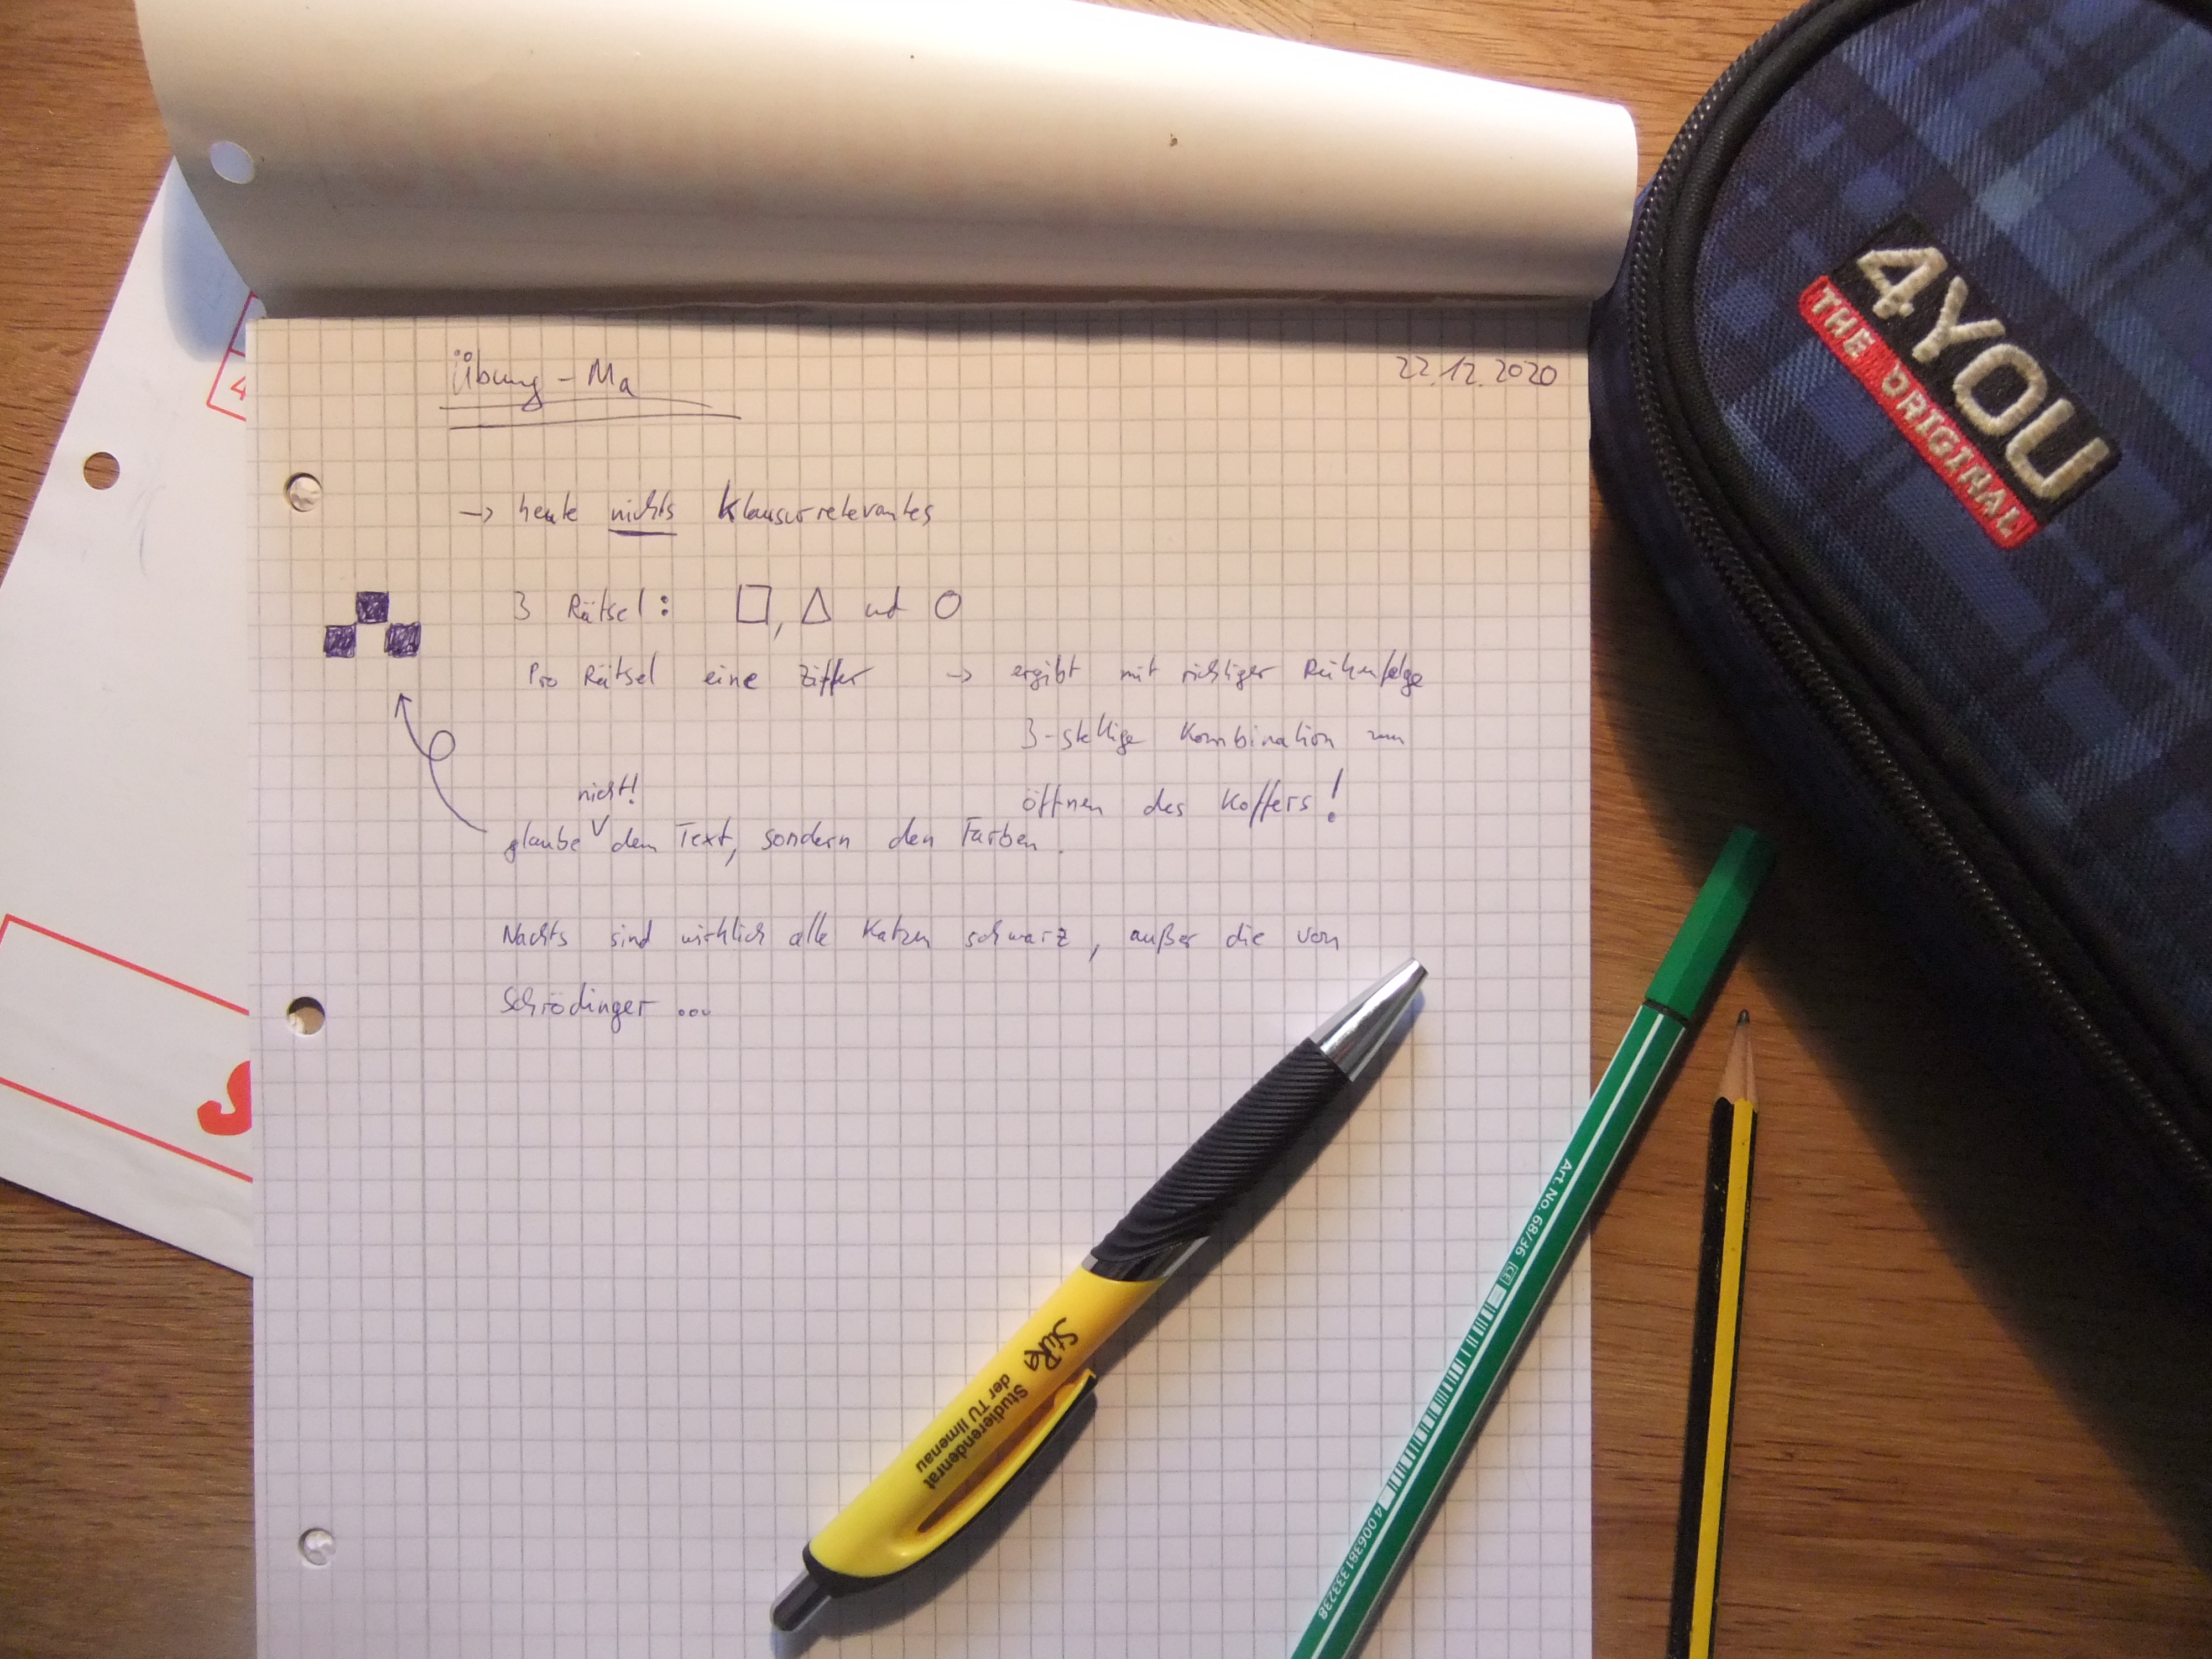 Übung - Ma
22.12.2020
→ heute nichts klausurrelevantes
3 Rätsel: □, △ und ○
Pro Rätsel eine Ziffer → ergibt mit richtiger Reihenfolge
3-stellige Kombination zum
öffnen des Koffers!
nicht!
glaube ∨ dem Text, sondern den Farben.
Nachts sind wirklich alle Katzen schwarz, außer die von
Schrödinger ...
4YOU
THE ORIGINAL
StuRa Studierendenrat
der TU Ilmenau
Art. No. 68/36 CE
4 006381 333238
4